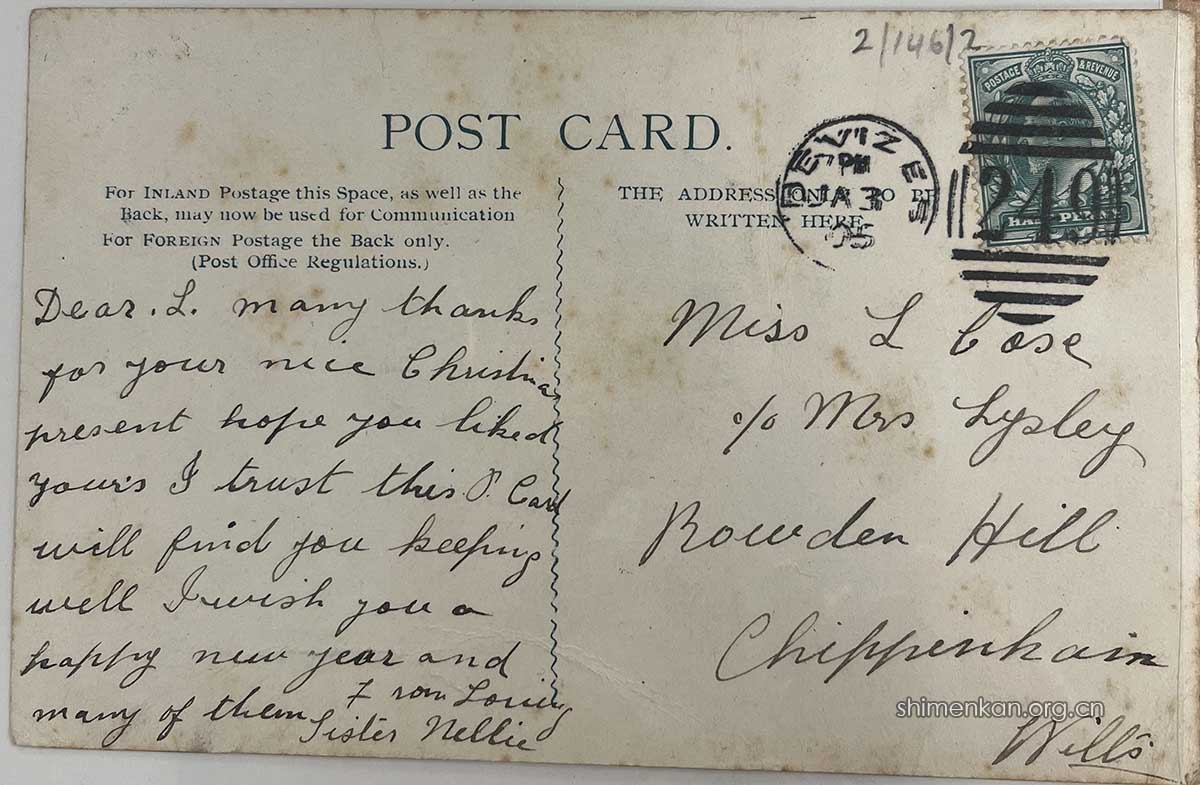 2/146/2
POSTAGE & REVENUE
POST CARD.
DEVIZES
PM
JA 3
05
249
HALF PENNY
For INLAND Postage this Space, as well as the
Back, may now be used for Communication
For FOREIGN Postage the Back only.
(Post Office Regulations.)
THE ADDRESS ONLY TO BE
WRITTEN HERE
Dear. L. many thanks
for your nice Christmas
present hope you liked
yours I trust this P. Card
will find you keeping
well I wish you a
happy new year and
many of them From Loving
Sister Nellie
Miss L Case
c/o Mrs Lysley
Rowden Hill
Chippenham
Wilts
shimenkan.org.cn